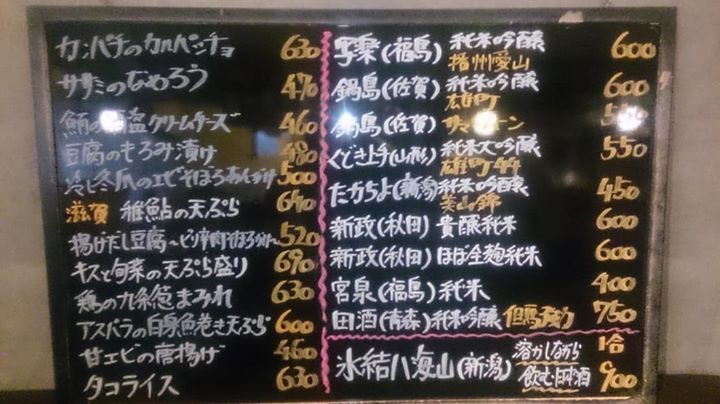 カンパチのカルパッチョ 630
ササミのなめろう 470
鮪の酒盗クリームチーズ 460
豆腐のもろみ漬け 480
冷し冬瓜のエビそぼろあんかけ 500
滋賀 稚鮎の天ぷら 640
揚げだし豆腐〜ピリ辛肉そぼろがけ〜 520
キスと旬菜の天ぷら盛り 690
鶏の九条葱まみれ 630
アスパラの白身魚巻き天ぷら 600
甘エビの唐揚げ 460
タコライス 630
写楽(福島) 純米吟醸 600
播州愛山
鍋島(佐賀) 純米吟醸 600
雄町
鍋島(佐賀) サマームーン 550
くどき上手(山形) 純米大吟醸 550
雄町44
たかちよ(新潟) 純米吟醸 450
美山錦
新政(秋田) 貴醸純米 600
新政(秋田) ほぼ全麹純米 600
宮泉(福島) 純米 400
田酒(青森) 純米吟醸 750
氷結八海山(新潟) 溶かしながら 1合
飲む日本酒 900